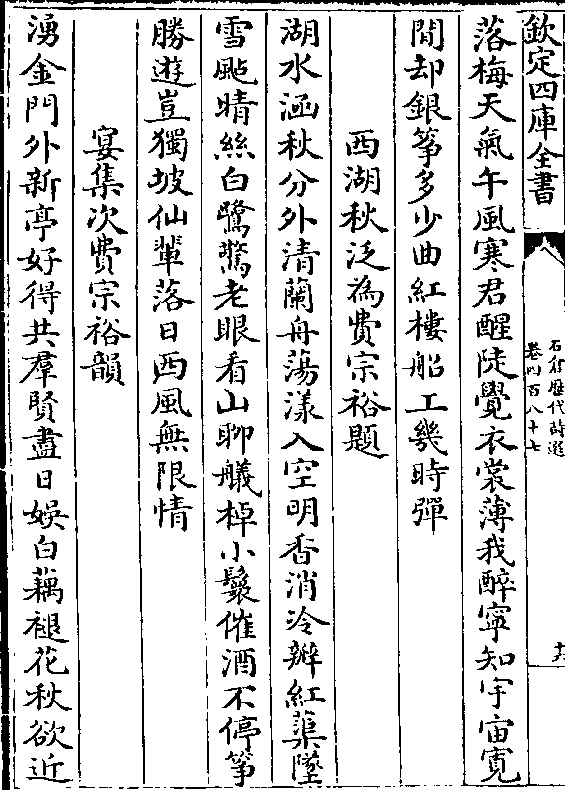 欽定四庫全書
石倉歴代詩選
卷四百八十七
十六
落梅天氣午風寒君醒陡覺衣裳薄我醉寜知宇宙寛
間却銀筝多少曲紅樓船工幾時彈
西湖秋泛為費宗裕題
湖水涵秋分外清蘭舟蕩漾入空明香消冷瓣紅蕖墜
雪颭晴絲白鷺驚老眼看山聊艤棹小鬟催酒不停筝
勝遊豈獨坡仙輩落日西風無限情
宴集次費宗裕韻
湧金門外新亭好得共羣賢盡日娛白藕褪花秋欲近